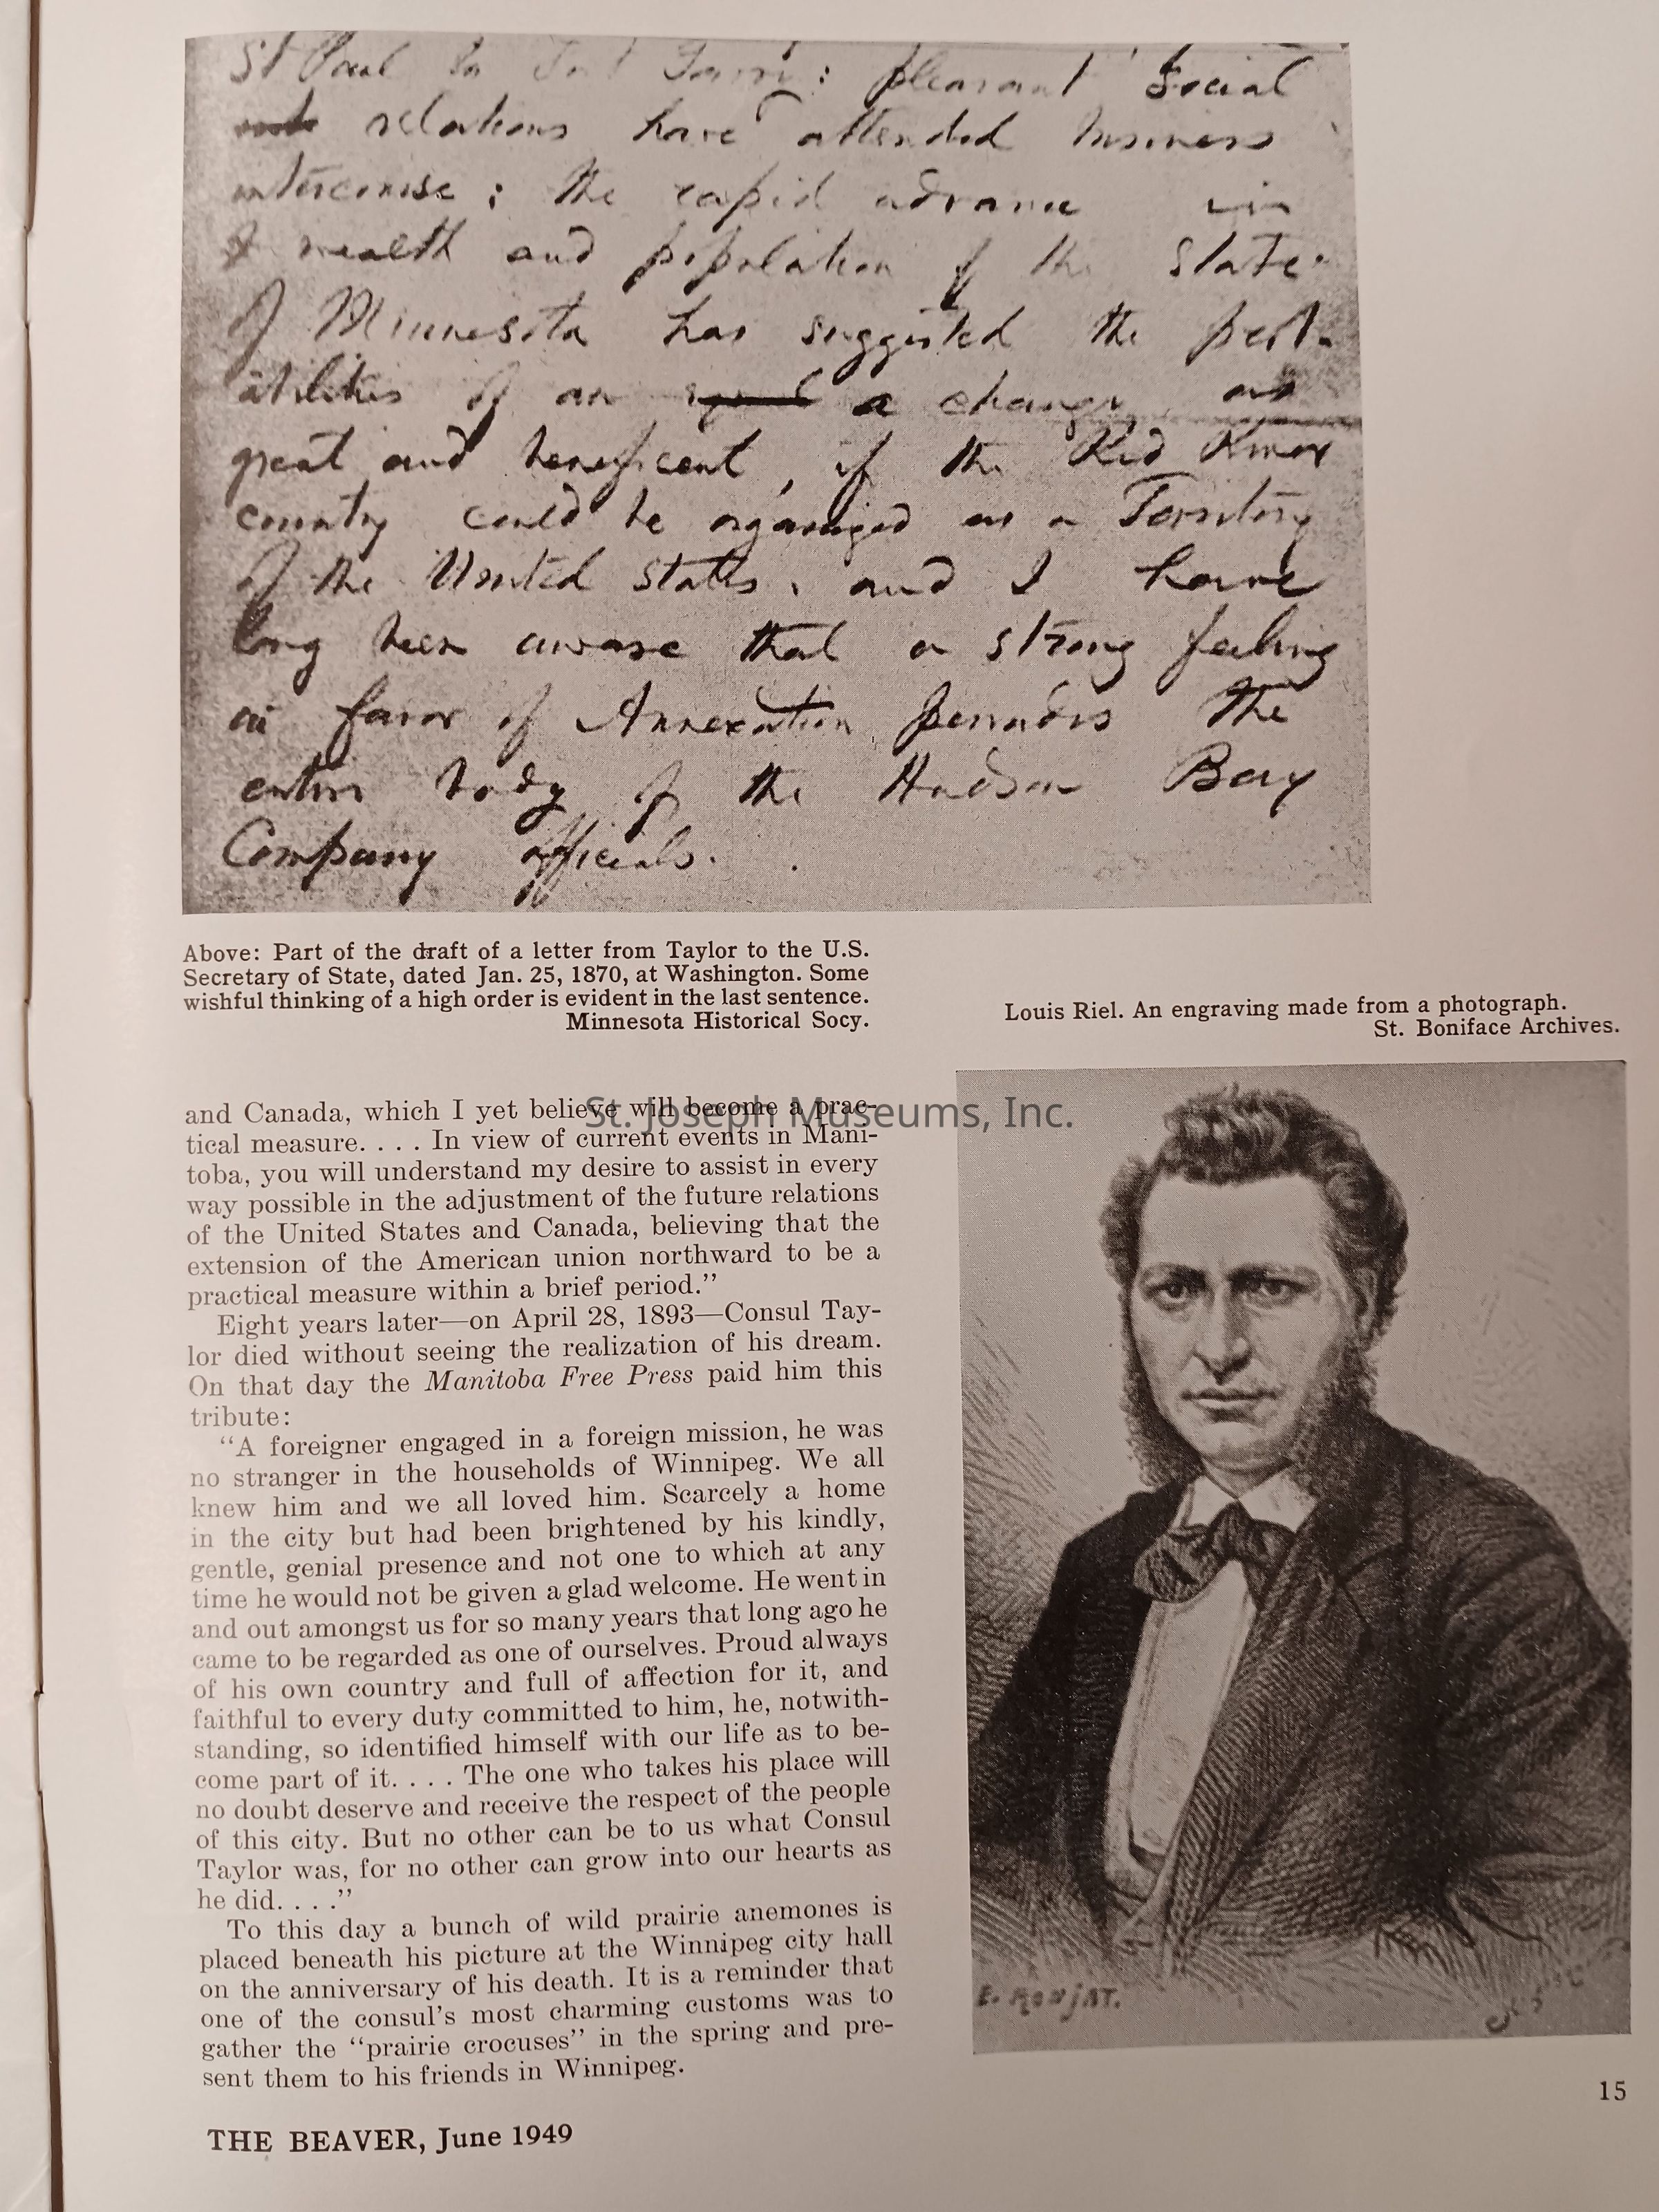 St Paul to Fort Garry: pleasant social
relations have attended business
intercourse; the rapid advance in
wealth and population of the State
of Minnesota has suggested the
of an a change as
great and beneficent, if the Red River
country could be organized as a Territory
of the United States, and I have
long been aware that a strong feeling
in favor of Annexation pervades the
entire body of the Hudson Bay
Company officials.
Above: Part of the draft of a letter from Taylor to the U.S.
Secretary of State, dated Jan. 25, 1870, at Washington. Some
wishful thinking of a high order is evident in the last sentence.
Minnesota Historical Socy.
Louis Riel. An engraving made from a photograph.
St. Boniface Archives.
St. Joseph Museums, Inc.
and Canada, which I yet believe will become a prac-
tical measure. . . . In view of current events in Mani-
toba, you will understand my desire to assist in every
way possible in the adjustment of the future relations
of the United States and Canada, believing that the
extension of the American union northward to be a
practical measure within a brief period."
Eight years later—on April 28, 1893—Consul Tay-
lor died without seeing the realization of his dream.
On that day the Manitoba Free Press paid him this
tribute:
"A foreigner engaged in a foreign mission, he was
no stranger in the households of Winnipeg. We all
knew him and we all loved him. Scarcely a home
in the city but had been brightened by his kindly,
gentle, genial presence and not one to which at any
time he would not be given a glad welcome. He went in
and out amongst us for so many years that long ago he
came to be regarded as one of ourselves. Proud always
of his own country and full of affection for it, and
faithful to every duty committed to him, he, notwith-
standing, so identified himself with our life as to be-
come part of it. . . . The one who takes his place will
no doubt deserve and receive the respect of the people
of this city. But no other can be to us what Consul
Taylor was, for no other can grow into our hearts as
he did. . . ."
To this day a bunch of wild prairie anemones is
placed beneath his picture at the Winnipeg city hall
on the anniversary of his death. It is a reminder that
one of the consul's most charming customs was to
gather the "prairie crocuses" in the spring and pre-
sent them to his friends in Winnipeg.
E. RONJAT.
15
THE BEAVER, June 1949